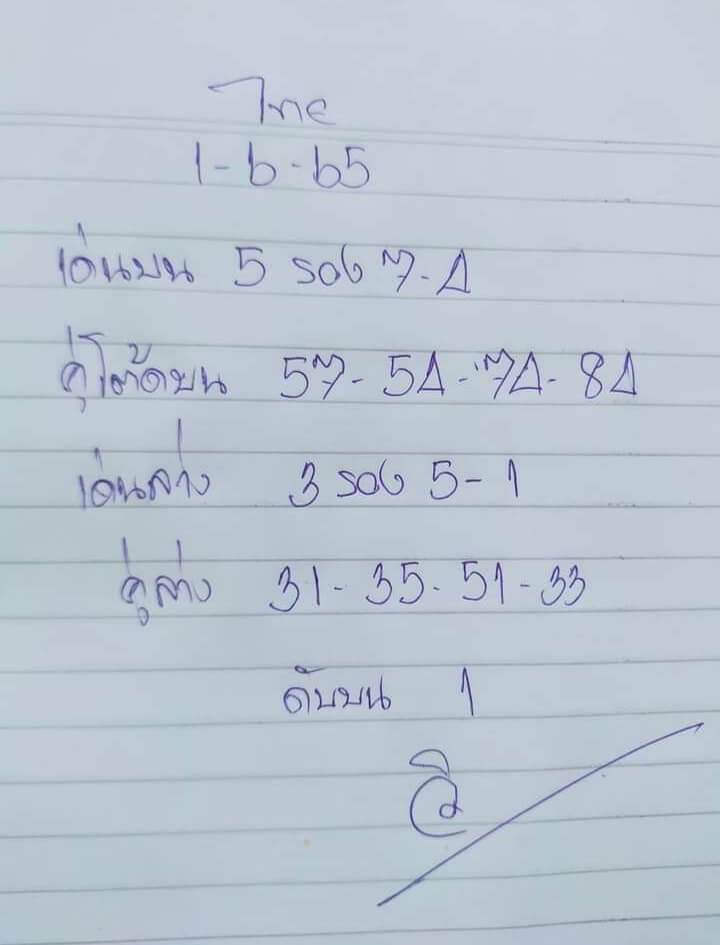 ไทย
1-6-65
เด่นบน 5 รอง 7-4
คู่โต๊ดบน 57-54-74-84
เด่นล่าง 3 รอง 5-1
คู่ล่าง 31-35-51-33
ดับบน 1